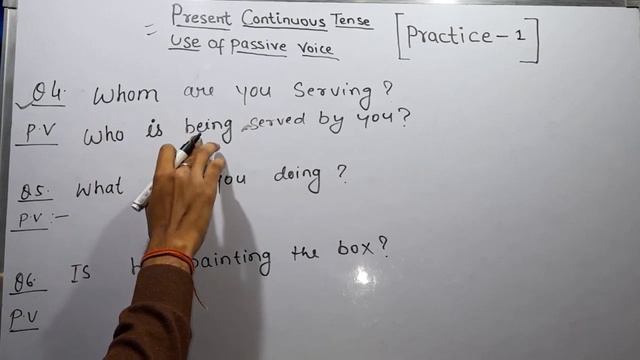 = Present Continuous Tense
Use of Passive Voice [Practice-1]
Q4. Whom are you serving?
P.V Who is being served by you?
Q5. What you doing?
P.V:-
Q6. Is painting the box?
P.V